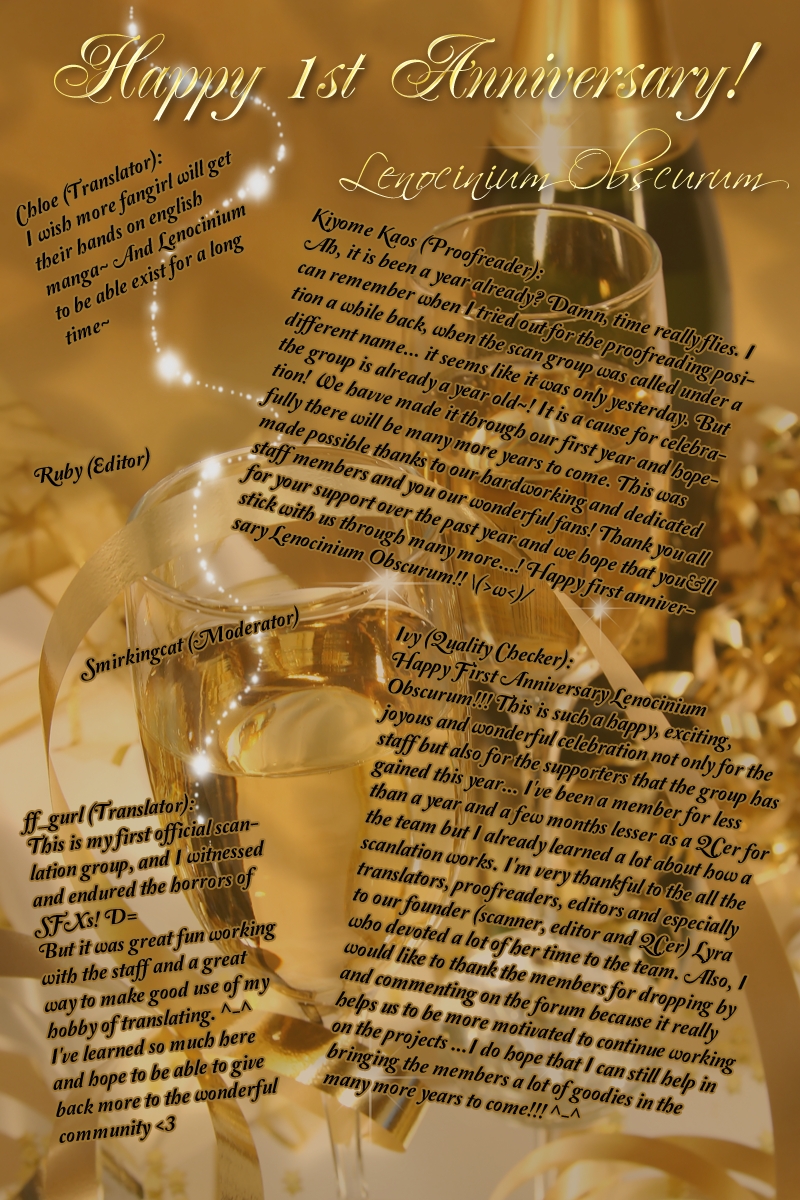 Happy 1st Anniversary!
Lenocinium Obscurum
Chloe (Translator):
I wish more fangirl will get
their hands on english
manga~ And Lenocinium
to be able exist for a long
time~
Kiyome Kaos (Proofreader):
Ah, it is been a year already? Damn, time really flies. I
can remember when I tried out for the proofreading posi-
tion a while back, when the scan group was called under a
different name... it seems like it was only yesterday. But
the group is already a year old~! It is a cause for celebra-
tion! We havve made it through our first year and hope-
fully there will be many more years to come. This was
made possible thanks to our hardworking and dedicated
staff members and you our wonderful fans! Thank you all
for your support over the past year and we hope that you&ll
stick with us through many more....! Happy first anniver-
sary Lenocinium Obscurum!! \(>ω<)/
Ruby (Editor)
Smirkingcat (Moderator)
Ivy (Quality Checker):
Happy First Anniversary Lenocinium
Obscurum!!! This is such a happy, exciting,
joyous and wonderful celebration not only for the
staff but also for the supporters that the group has
gained this year... I've been a member for less
than a year and a few months lesser as a QCer for
the team but I already learned a lot about how a
scanlation works. I'm very thankful to the all the
translators, proofreaders, editors and especially
to our founder (scanner, editor and QCer) Lyra
who devoted a lot of her time to the team. Also, I
would like to thank the members for dropping by
and commenting on the forum because it really
helps us to be more motivated to continue working
on the projects ...I do hope that I can still help in
bringing the members a lot of goodies in the
many more years to come!!! ^_^
ff_gurl (Translator):
This is my first official scan-
lation group, and I witnessed
and endured the horrors of
SFXs! D=
But it was great fun working
with the staff and a great
way to make good use of my
hobby of translating. ^_^
I've learned so much here
and hope to be able to give
back more to the wonderful
community <3